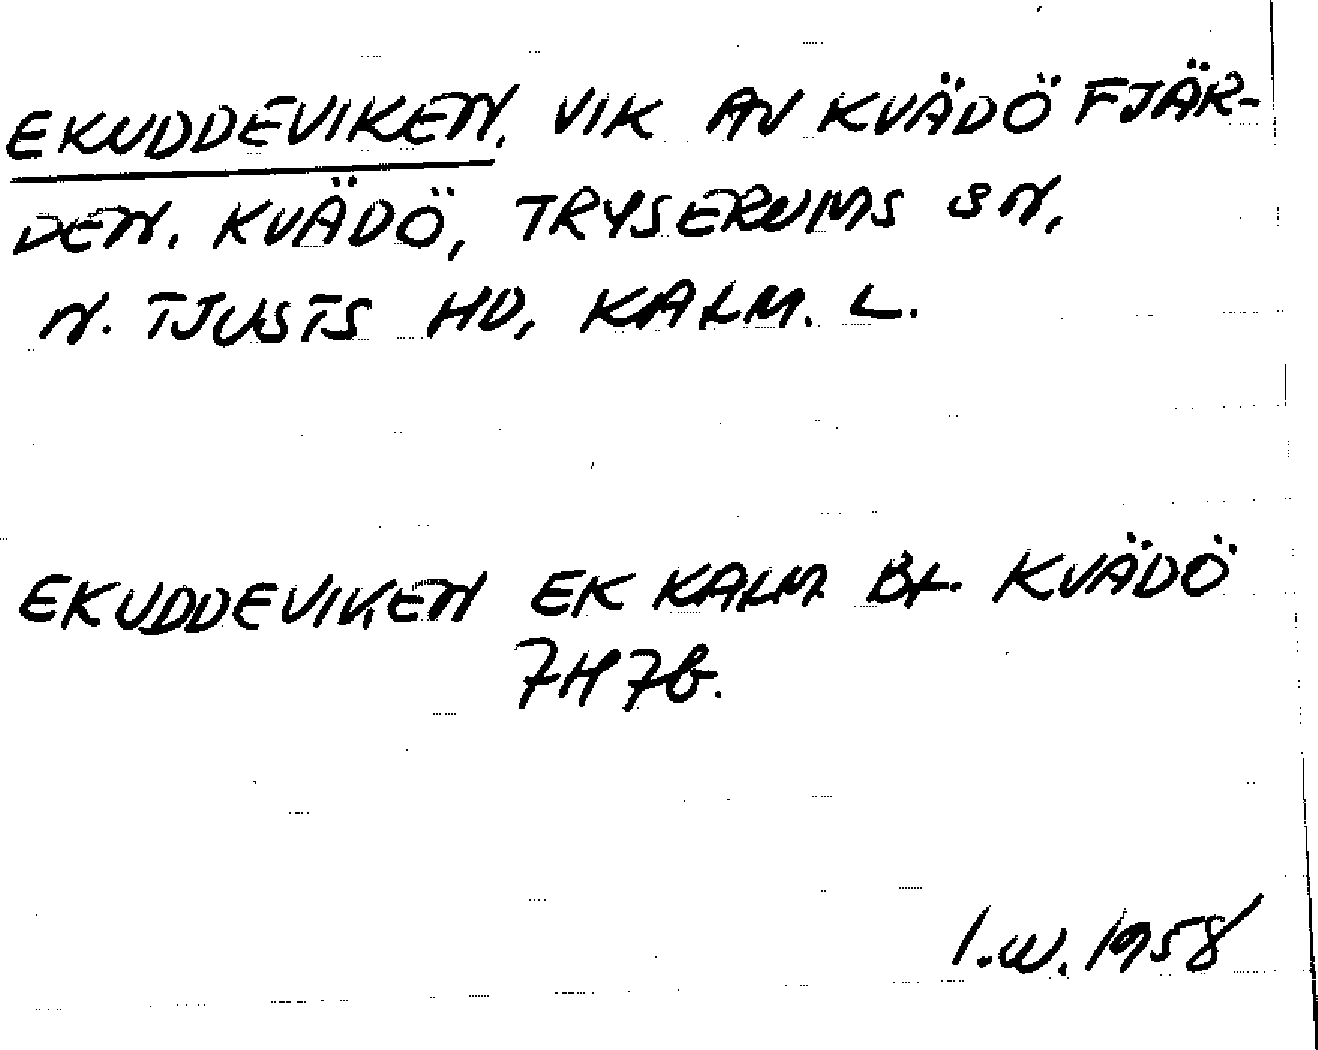 EKUDDEVIKEN. VIK AV KVÄDÖ FJÄR-
DEN. KVÄDÖ, TRYSERUMS SN,
N. TJUSTS HD, KALM. L.
EKUDDEVIKEN EK KALM BL. KVÄDÖ
7H 7b.
I.W. 1958